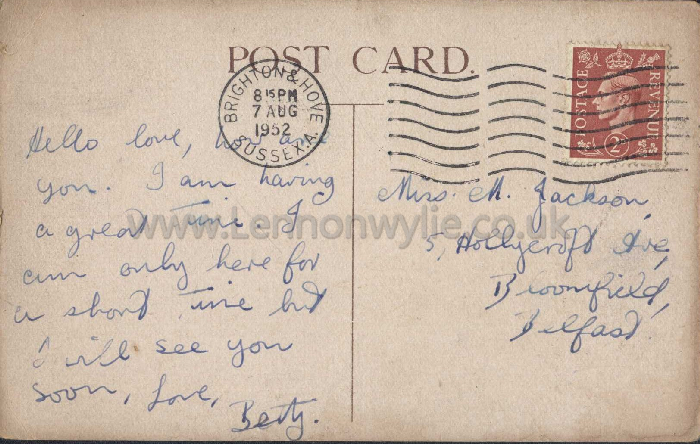 POST CARD.
BRIGHTON & HOVE
8 15 PM
7 AUG
1952
SUSSEX.A.
POSTAGE
REVENUE
2D
Hello love, how are
you. I am having
a great time. I
am only here for
a short time but
I will see you
soon, Love,
Betty.
Miss. M. Jackson,
5, Hollycroft Ave,
Bloomfield,
Belfast.
www.Lennonwylie.co.uk